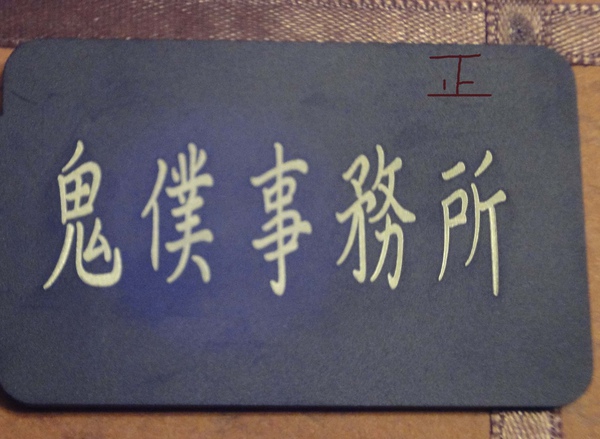 正
鬼僕事務所